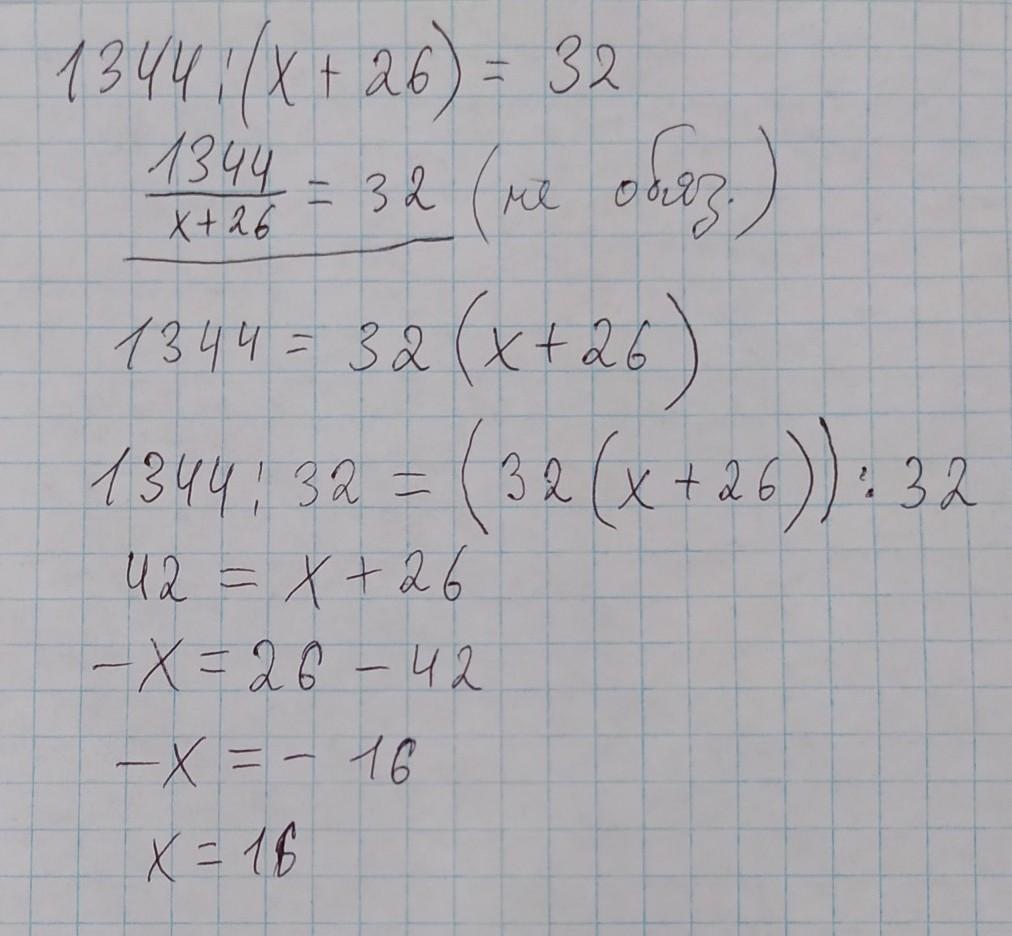 1344:(x+26)=32
1344/(x+26) = 32 (не обяз.)
1344 = 32(x+26)
1344:32 = (32(x+26)):32
42 = x+26
-x = 26-42
-x = -16
x = 16